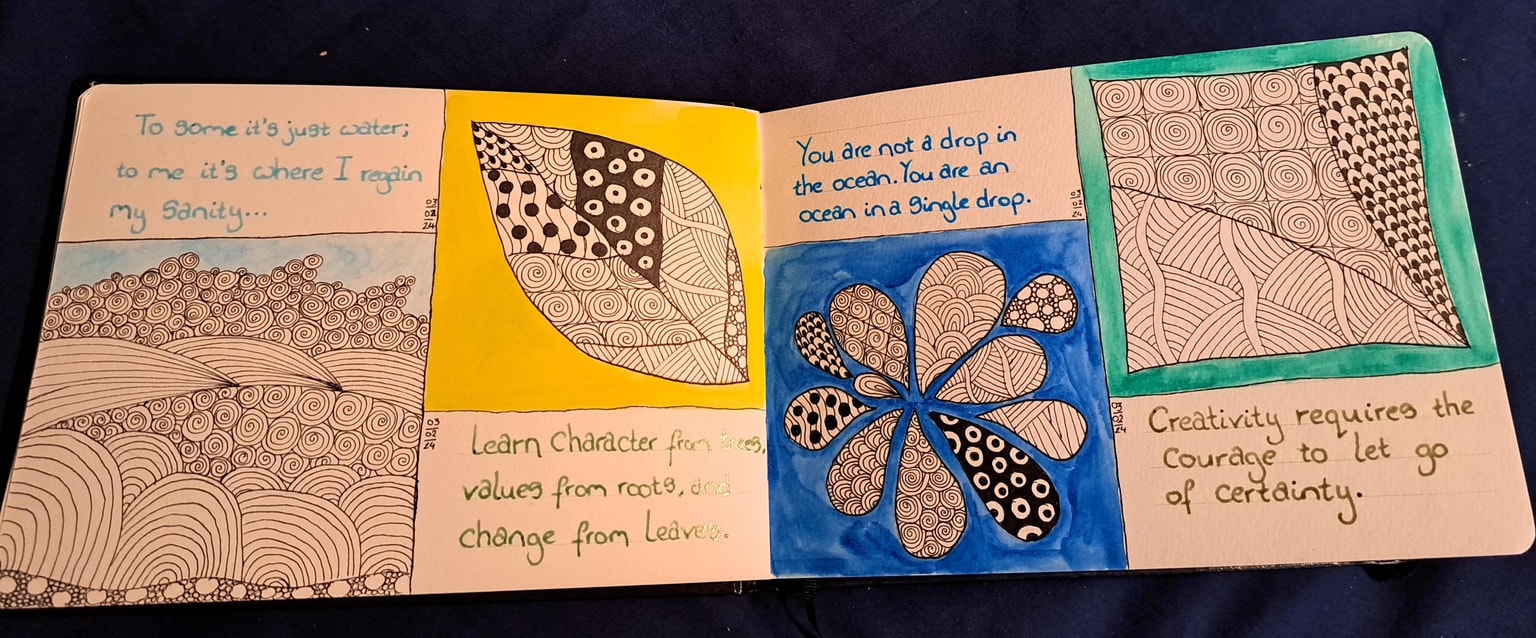 To some it's just water;
to me it's where I regain
my sanity...
Learn Character from trees,
values from roots, and
change from Leaves.
You are not a drop in
the ocean. You are an
ocean in a single drop.
Creativity requires the
Courage to let go
of certainty.